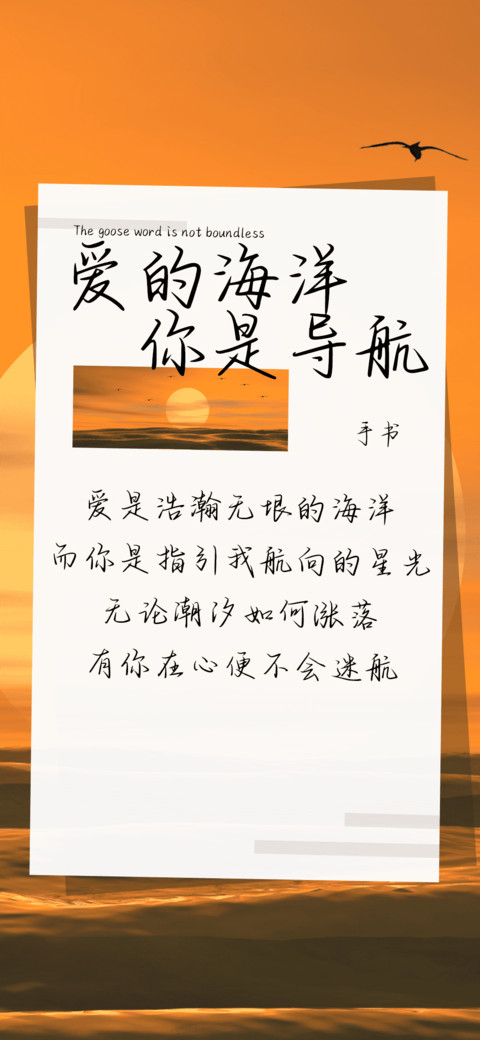 The goose word is not boundless
爱的海洋
你是导航
手书
爱是浩瀚无垠的海洋
而你是指引我航向的星光
无论潮汐如何涨落
有你在心便不会迷航